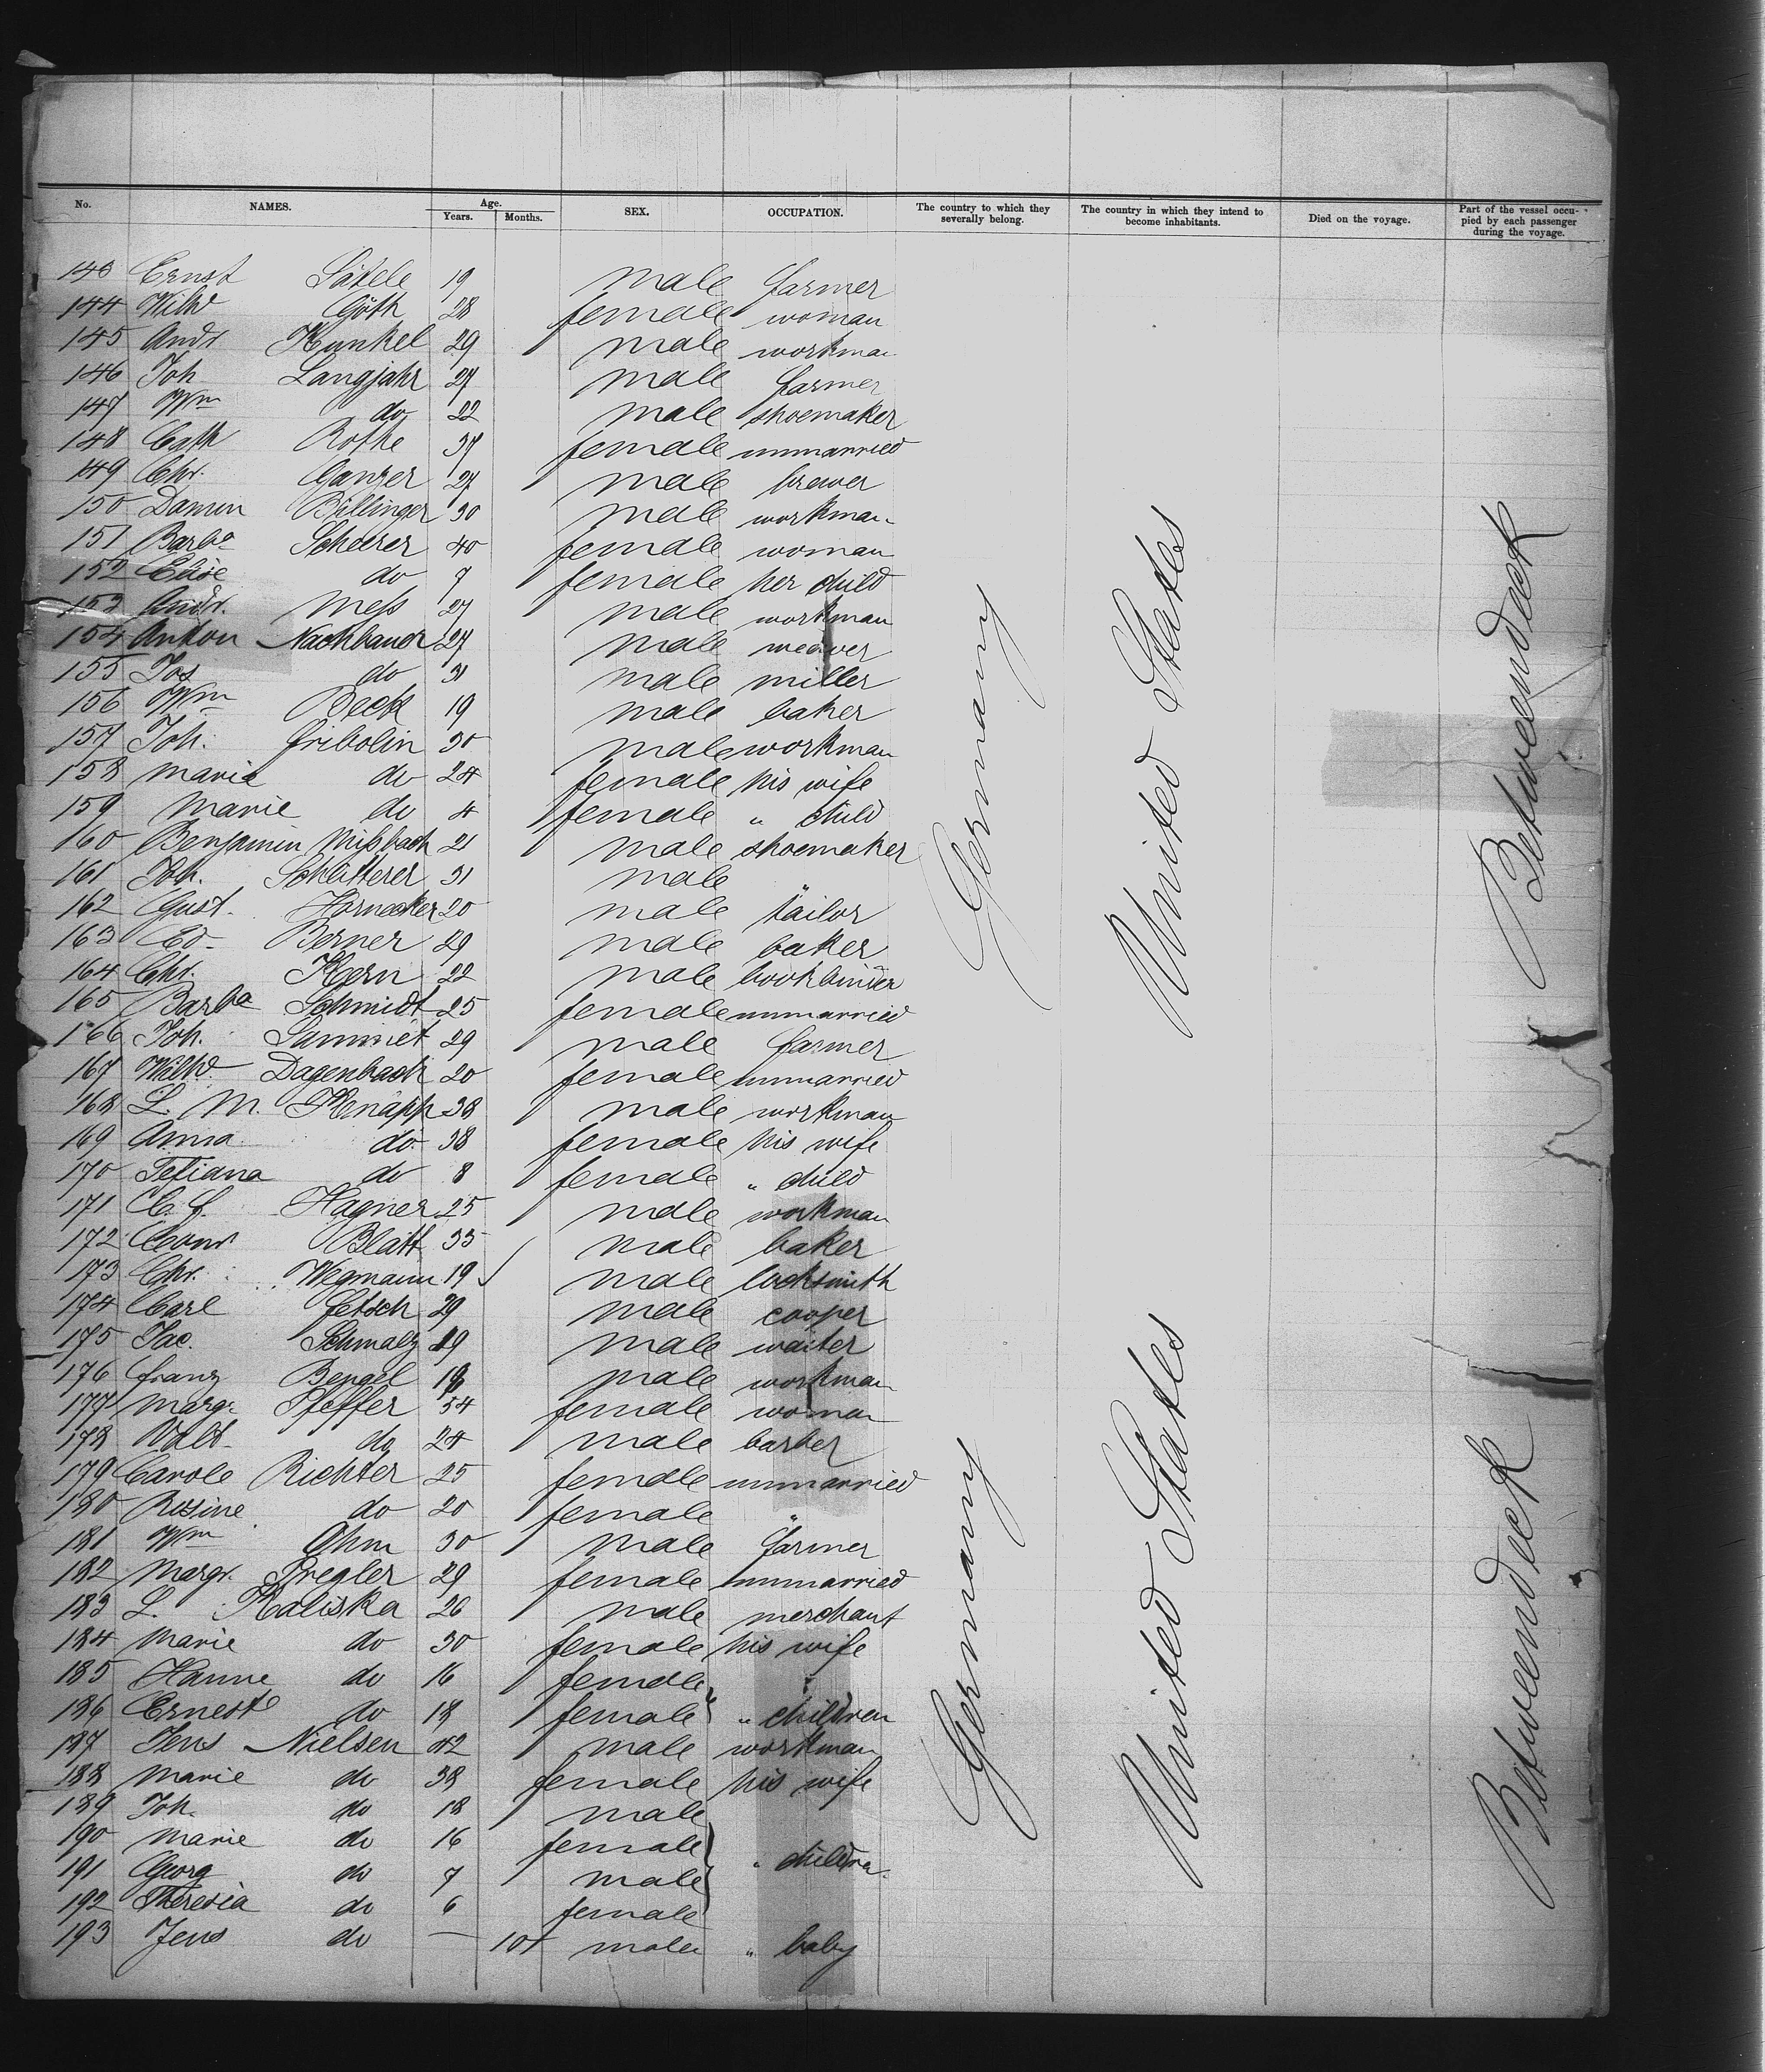 No. NAMES. Age. Years. Months. SEX. OCCUPATION. The country to which they severally belong. The country in which they intend to become inhabitants. Died on the voyage. Part of the vessel occupied by each passenger during the voyage.
143 Ernst 19 male farmer
144 Wilh Göth 28 female woman
145 Andr Kunkel 29 male workman
146 Joh Langjahr 27 male farmer
147 Wm do 22 male shoemaker
148 Cath Rothe 37 female unmarried
149 Chr. Ganzer 27 male brewer
150 Damin Billinger 30 male workman
151 Barba Scheerer 40 female woman
152 Elise do 7 female her child
153 Andr. Mess 27 male workman
154 Anton Nachbauer 27 male weaver
155 Jos do 31 male miller
156 Wm Beck 19 male baker
157 Joh. Fribolin 30 male workman
158 Marie do 24 female his wife
159 Marie do 4 female " child
160 Benjamin Missbach 21 male shoemaker
161 Joh. Schlitterer 31 male "
162 Gust. Hornecker 20 male tailor
163 Ed. Berner 29 male baker
164 Chr. Kern 22 male bookbinder
165 Barba Schmidt 25 female unmarried
166 Joh. Sammet 29 male farmer
167 Wilh. Dagenbach 20 female unmarried
168 L. M. Knapp 38 male workman
169 Anna do 38 female his wife
170 Tetiana do 8 female " child
171 C. F. Hagner 25 male workman
172 Conr Blatt 35 male baker
173 Chr. Wegmann 19 male locksmith
174 Carl Fetsch 29 male cooper
175 Jac. Schmalz 29 male waiter
176 Franz Bengel male workman
177 Margr Pfeffer 54 female woman
178 do 24 male barber
179 Carole Richter 25 female unmarried
180 Rosine do 20 female "
181 Wm Ohm 30 male farmer
182 Margr. Pregler 29 female unmarried
183 L. Kaliska 26 male merchant
184 Marie do 30 female his wife
185 Hanne do 16 female
186 Ernest do 18 female " children
187 Jens Nielsen 42 male workman
188 Marie do 38 female his wife
189 Joh. do 18 male
190 Marie do 16 female
191 Georg do 7 male " children
192 Theresia do 6 female
193 Jens do — 10 male " baby
Germany
United States
Betweendeck
Germany
United States
Betweendeck